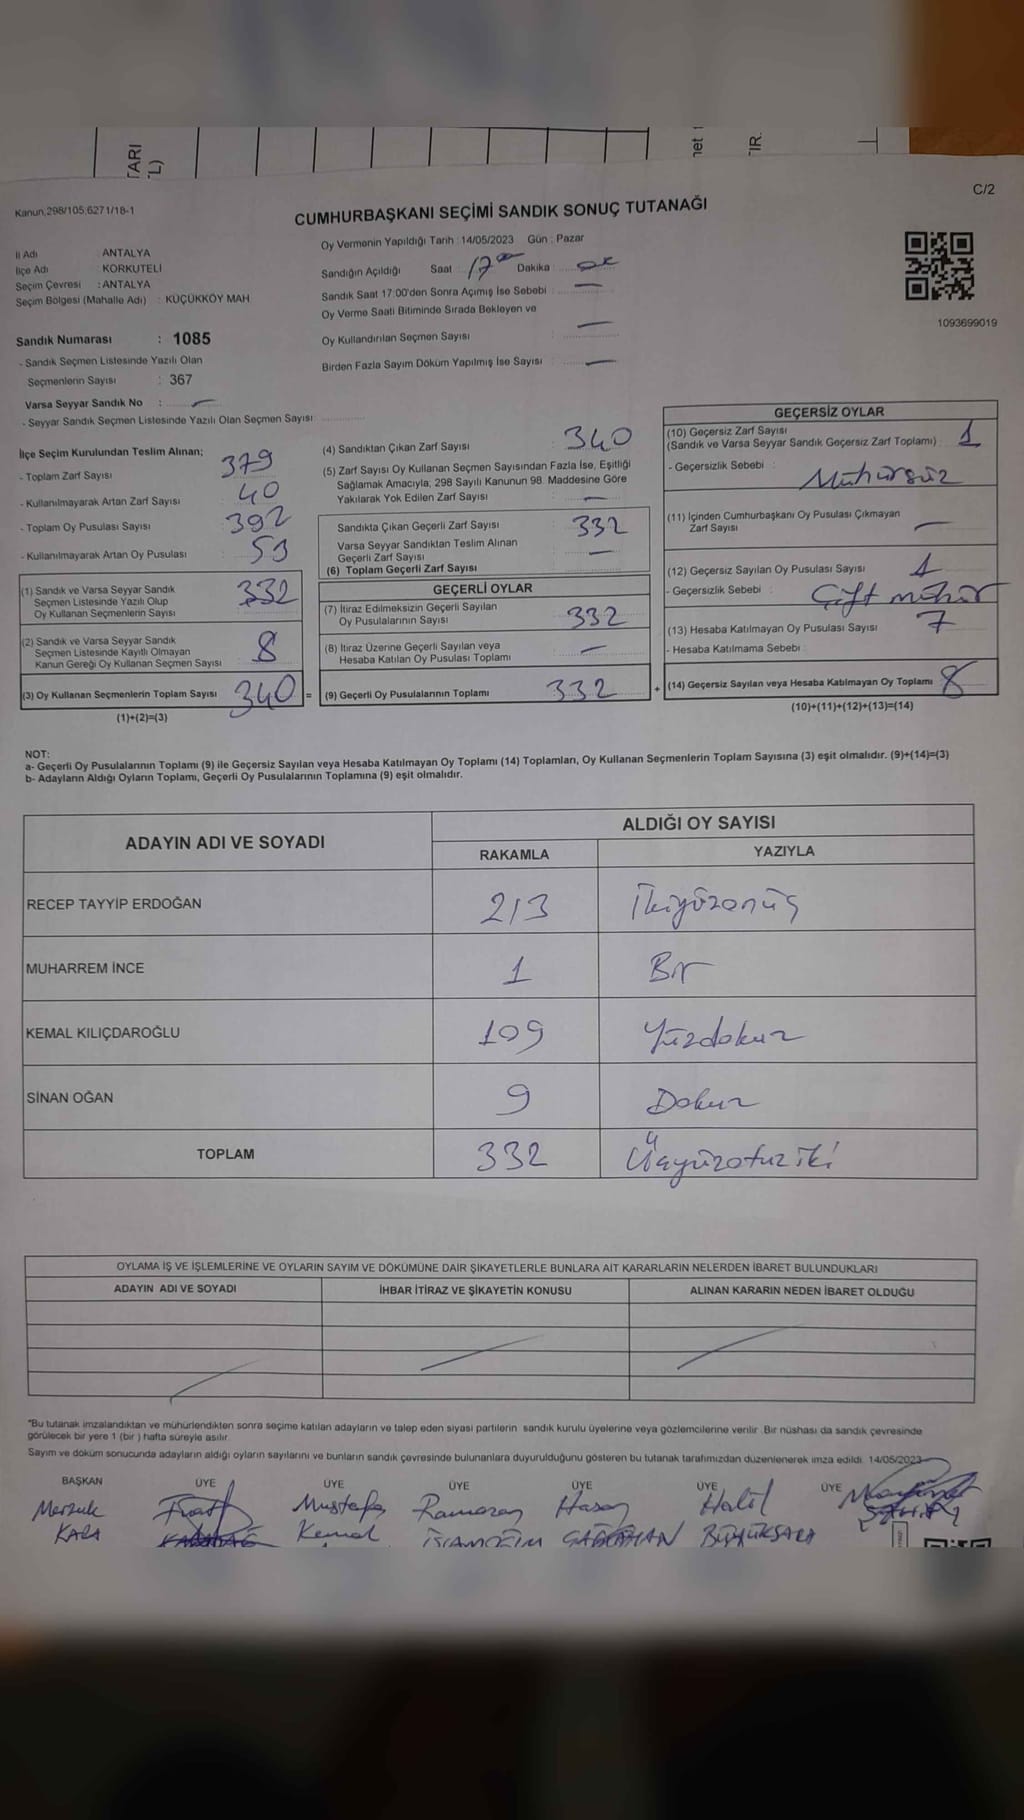 TARI
TL)
net 1
TIR.
C/2
Kanun,298/105,6271/18-1
CUMHURBAŞKANI SEÇİMİ SANDIK SONUÇ TUTANAĞI
İl Adı : ANTALYA
İlçe Adı : KORKUTELİ
Seçim Çevresi : ANTALYA
Seçim Bölgesi (Mahalle Adı) : KÜÇÜKKÖY MAH
Sandık Numarası : 1085
- Sandık Seçmen Listesinde Yazılı Olan
Seçmenlerin Sayısı : 367
Varsa Seyyar Sandık No : —
- Seyyar Sandık Seçmen Listesinde Yazılı Olan Seçmen Sayısı
Oy Vermenin Yapıldığı Tarih : 14/05/2023 Gün : Pazar
Sandığın Açıldığı Saat : 17 00 Dakika :
Sandık Saat 17:00'den Sonra Açımış İse Sebebi : —
Oy Verme Saati Bitiminde Sırada Bekleyen ve
Oy Kullandırılan Seçmen Sayısı : —
Birden Fazla Sayım Döküm Yapılmış İse Sayısı : —
1093699019
İlçe Seçim Kurulundan Teslim Alınan;
- Toplam Zarf Sayısı 379
- Kullanılmayarak Artan Zarf Sayısı 40
- Toplam Oy Pusulası Sayısı 392
- Kullanılmayarak Artan Oy Pusulası 53
(1) Sandık ve Varsa Seyyar Sandık
Seçmen Listesinde Yazılı Olup
Oy Kullanan Seçmenlerin Sayısı 332
(2) Sandık ve Varsa Seyyar Sandık
Seçmen Listesinde Kayıtlı Olmayan
Kanun Gereği Oy Kullanan Seçmen Sayısı 8
(3) Oy Kullanan Seçmenlerin Toplam Sayısı 340 =
(1)+(2)=(3)
(4) Sandıktan Çıkan Zarf Sayısı 340
(5) Zarf Sayısı Oy Kullanan Seçmen Sayısından Fazla İse, Eşitliği
Sağlamak Amacıyla, 298 Sayılı Kanunun 98. Maddesine Göre
Yakılarak Yok Edilen Zarf Sayısı —
Sandıkta Çıkan Geçerli Zarf Sayısı 332
Varsa Seyyar Sandıktan Teslim Alınan
Geçerli Zarf Sayısı —
(6) Toplam Geçerli Zarf Sayısı
GEÇERLİ OYLAR
(7) İtiraz Edilmeksizin Geçerli Sayılan
Oy Pusulalarının Sayısı 332
(8) İtiraz Üzerine Geçerli Sayılan veya
Hesaba Katılan Oy Pusulası Toplamı —
(9) Geçerli Oy Pusulalarının Toplamı 332 +
GEÇERSİZ OYLAR
(10) Geçersiz Zarf Sayısı
(Sandık ve Varsa Seyyar Sandık Geçersiz Zarf Toplamı) : 1
- Geçersizlik Sebebi : Mühürsüz
(11) İçinden Cumhurbaşkanı Oy Pusulası Çıkmayan
Zarf Sayısı —
(12) Geçersiz Sayılan Oy Pusulası Sayısı 1
- Geçersizlik Sebebi : Çift mühür
(13) Hesaba Katılmayan Oy Pusulası Sayısı 7
- Hesaba Katılmama Sebebi :
(14) Geçersiz Sayılan veya Hesaba Katılmayan Oy Toplamı 8
(10)+(11)+(12)+(13)=(14)
NOT:
a- Geçerli Oy Pusulalarının Toplamı (9) ile Geçersiz Sayılan veya Hesaba Katılmayan Oy Toplamı (14) Toplamları, Oy Kullanan Seçmenlerin Toplam Sayısına (3) eşit olmalıdır. (9)+(14)=(3)
b- Adayların Aldığı Oyların Toplamı, Geçerli Oy Pusulalarının Toplamına (9) eşit olmalıdır.
ADAYIN ADI VE SOYADI ALDIĞI OY SAYISI
RAKAMLA YAZIYLA
RECEP TAYYİP ERDOĞAN 213 İkiyüzonüç
MUHARREM İNCE 1 Bir
KEMAL KILIÇDAROĞLU 109 Yüzdokuz
SİNAN OĞAN 9 Dokuz
TOPLAM 332 Üçyüzotuziki
OYLAMA İŞ VE İŞLEMLERİNE VE OYLARIN SAYIM VE DÖKÜMÜNE DAİR ŞİKAYETLERLE BUNLARA AİT KARARLARIN NELERDEN İBARET BULUNDUKLARI
ADAYIN ADI VE SOYADI İHBAR İTİRAZ VE ŞİKAYETİN KONUSU ALINAN KARARIN NEDEN İBARET OLDUĞU
"Bu tutanak imzalandıktan ve mühürlendikten sonra seçime katılan adayların ve talep eden siyasi partilerin sandık kurulu üyelerine veya gözlemcilerine verilir. Bir nüshası da sandık çevresinde
görülecek bir yere 1 (bir ) hafta süreyle asılır.
Sayım ve döküm sonucunda adayların aldığı oyların sayılarını ve bunların sandık çevresinde bulunanlara duyurulduğunu gösteren bu tutanak tarafımızdan düzenlenerek imza edildi. 14/05/2023
BAŞKAN ÜYE ÜYE ÜYE ÜYE ÜYE ÜYE
Merzuk Fırat Mustafa Ramazan Hasan Halil
KARA KARADAĞ Kemal BÜYÜKSARA